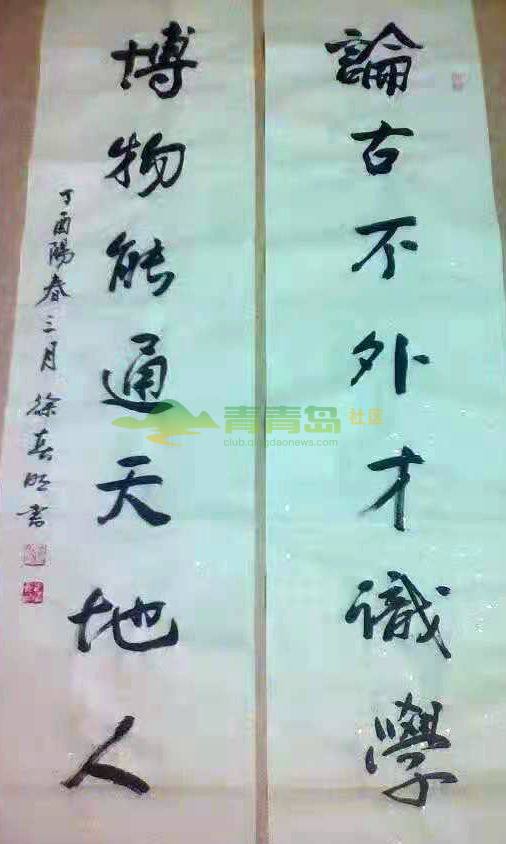 論古不外才識學
博物能通天地人
丁酉陽春三月徐春明書
青青岛社区
club.qingdaonews.com